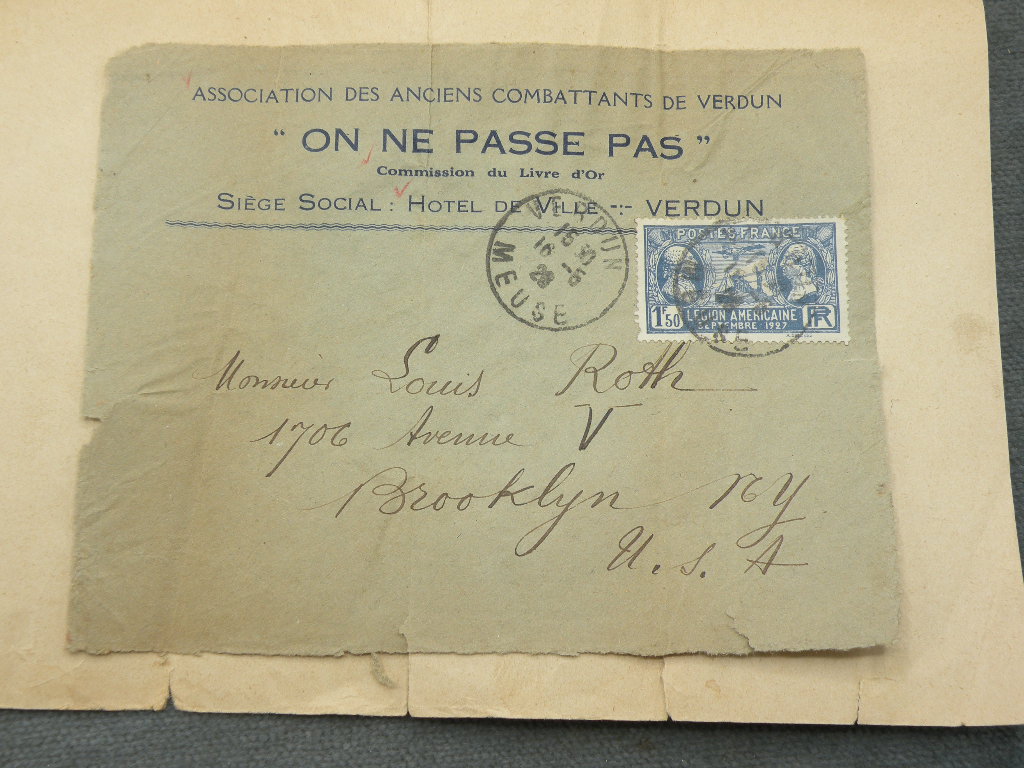 ASSOCIATION DES ANCIENS COMBATTANTS DE VERDUN
" ON NE PASSE PAS "
Commission du Livre d'Or
SIÈGE SOCIAL : HOTEL DE VILLE -:- VERDUN
VERDUN
MEUSE
POSTES FRANCE
1F50
LEGION AMERICAINE
SEPTEMBRE 1927
RF
Monsieur Louis Roth
1706 Avenue V
Brooklyn NY
U. S. A